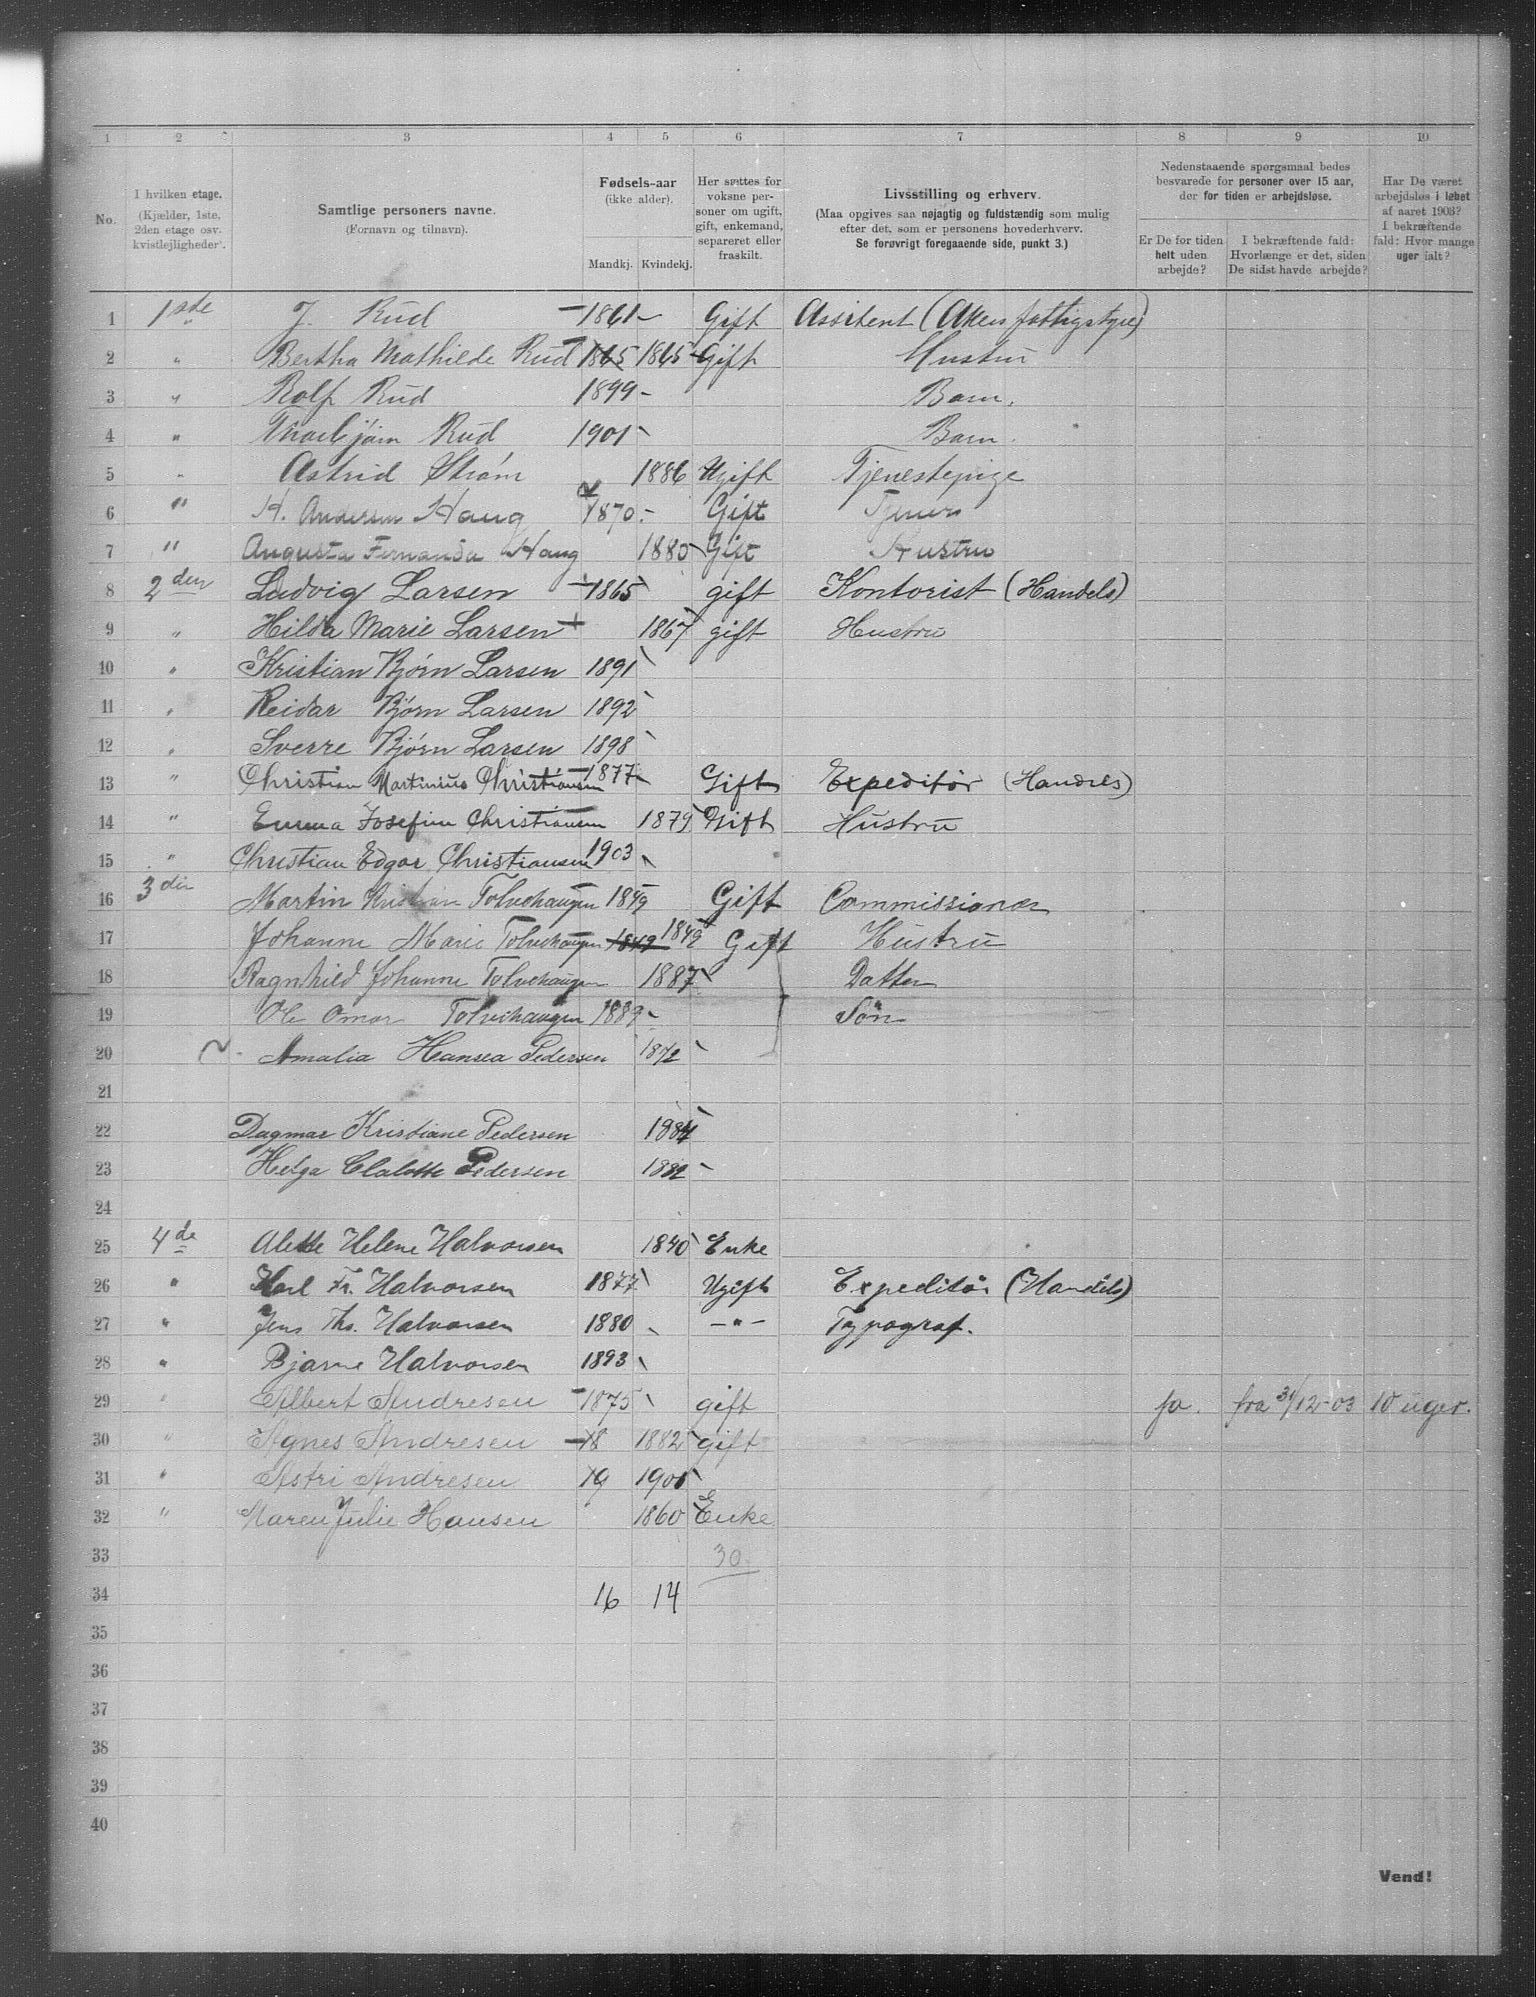 1 2 3 4 5 6 7 8 9 10
No.
I hvilken etage.
(Kjælder, 1ste, 2den etage osv. kvistlejligheder).
Samtlige personers navne.
(Fornavn og tilnavn).
Fødsels-aar
(ikke alder).
Mandkj. Kvindekj.
Her sættes for voksne personer om ugift, gift, enkemand, separeret eller fraskilt.
Livsstilling og erhverv.
(Maa opgives saa nøjagtig og fuldstændig som mulig efter det, som er personens hovederhverv.
Se forøvrigt foregaaende side, punkt 3.)
Nedenstaaende spørgsmaal bedes besvarede for personer over 15 aar, der for tiden er arbejdsløse.
Er De for tiden helt uden arbejde?
I bekræftende fald: Hvorlænge er det, siden De sidst havde arbejde?
Har De været arbejdsløs i løbet af aaret 1903? I bekræftende fald: Hvor mange uger ialt?
1 1ste J. Rud 1861 Gift Assitent (Akers fattigstyre)
2 " Bertha Mathilde Rud 1865 1865 Gift Hustru
3 " Rolf Rud 1899 Barn.
4 " Thorbjørn Rud 1901 Barn.
5 " Astrid Strøm 1886 Ugift Tjenestepige
6 " H. Andersen Haug 1870 Gift Tjener
7 " Augusta Fernanda Haug 1880 Gift Hustru
8 2den Ludvig Larsen 1865 gift Kontorist (Handels)
9 " Hilda Marie Larsen 1867 gift Hustru
10 " Kristian Bjørn Larsen 1891
11 " Reidar Bjørn Larsen 1892
12 " Sverre Bjørn Larsen 1898
13 " Christian Martinius Christiansen 1877 Gift Expeditør (Handels)
14 " Emma Josefine Christiansen 1879 Gift Hustru
15 " Christian Edgar Christiansen 1903
16 3die Martin Kristian Tolvehaugen 1849 Gift Commissionær
17 Johanne Marie Tolvehaugen 1849 1849 Gift Hustru
18 Ragnhild Johanne Tolvehaugen 1887 Datter
19 Ole Omar Tolvehaugen 1889 Søn
20 Amalia Hansea Pedersen 1872
21
22 Dagmar Kristiane Pedersen 1884
23 Helga Clalotte Pedersen 1882
24
25 4de Alette Helene Halvorsen 1840 Enke
26 " Karl Fr. Halvorsen 1877 Ugift Expeditør (Handels)
27 " Jens Ths. Halvorsen 1880 -"- Typograf.
28 " Bjarne Halvorsen 1893
29 " Albert Andresen 1875 gift ja. fra 31/12-03 10 uger.
30 " Agnes Andresen 18 1882 gift
31 " Astri Andresen 19 1901
32 " Maren Julie Hansen 1860 Enke
33 30
34 16 14
35
36
37
38
39
40
Vend!